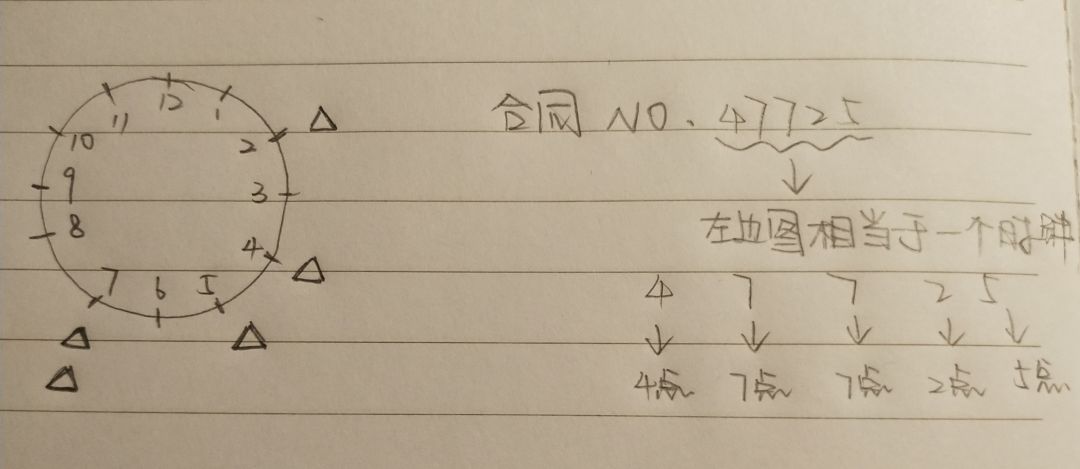 12
11 1
10 2
9 3
8 4
7 6 5
合同 NO. 47725
左边图相当于一个时钟
4 7 7 2 5
4点 7点 7点 2点 5点